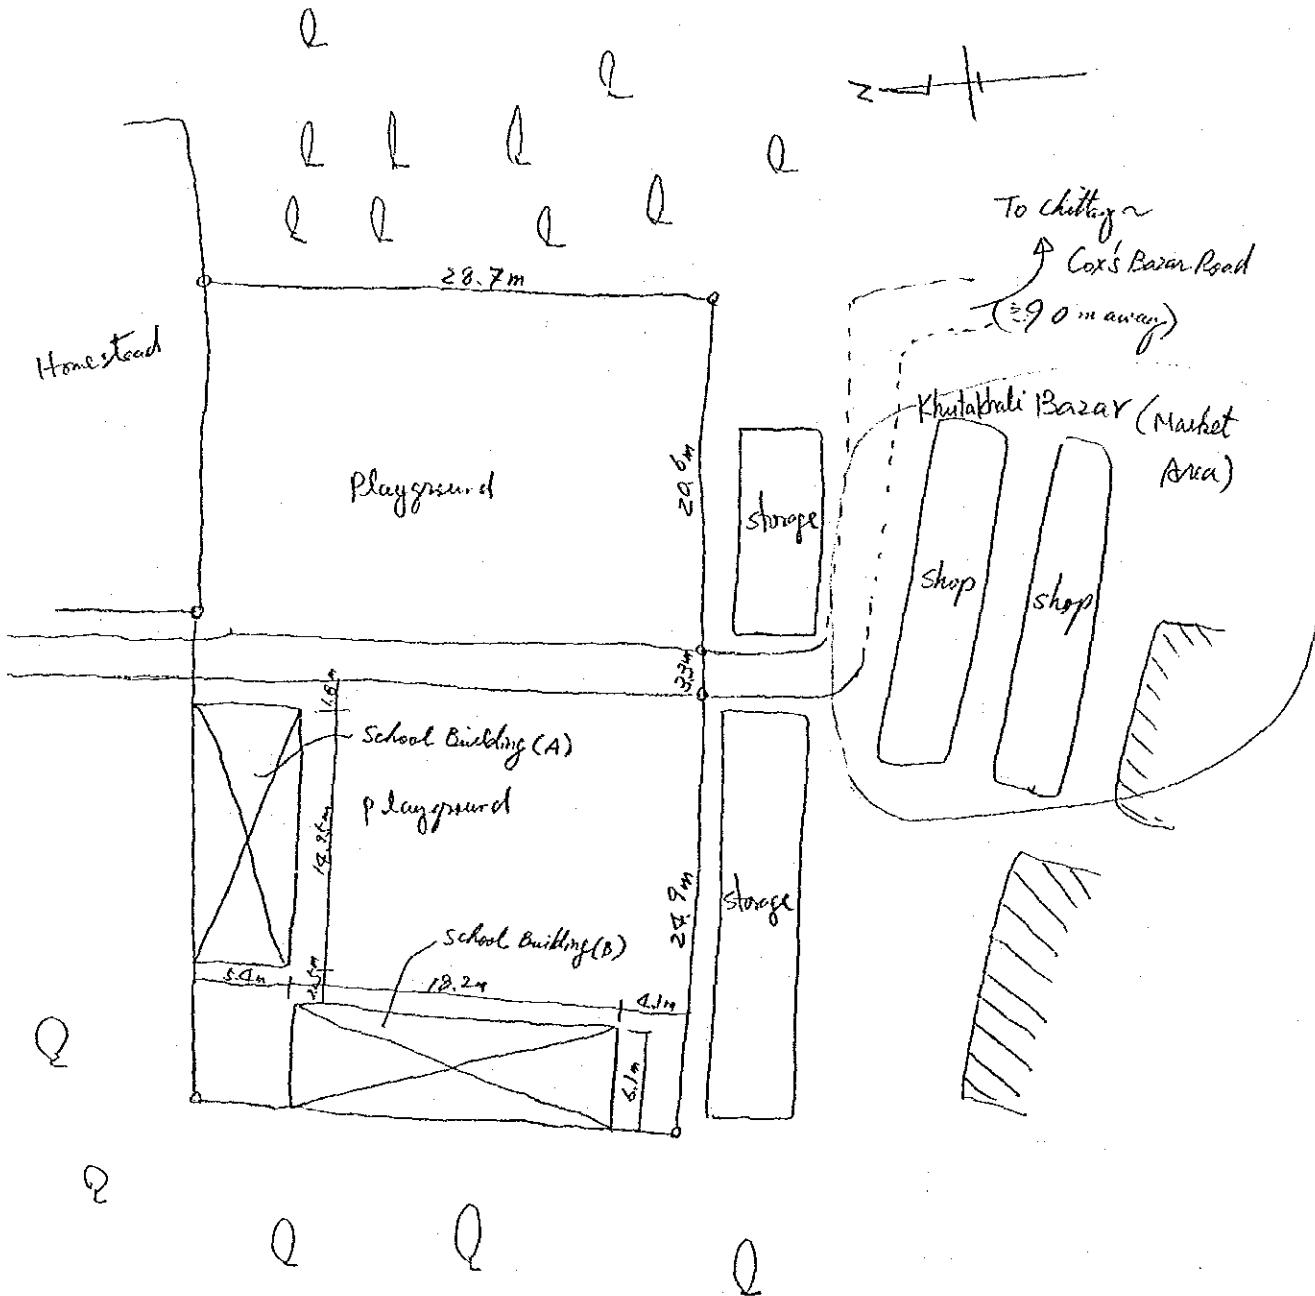 N
To Chittag~
Cox's Bazar Road
(≒90 m away)
28.7m
Homestead
Khutakhali Bazar (Market
Area)
20.6m
Playground
storage
shop
shop
3.3m
1.8m
School Building (A)
playground
24.9m
storage
School Building (B)
5.4m
18.2m
4.1m
6.1m